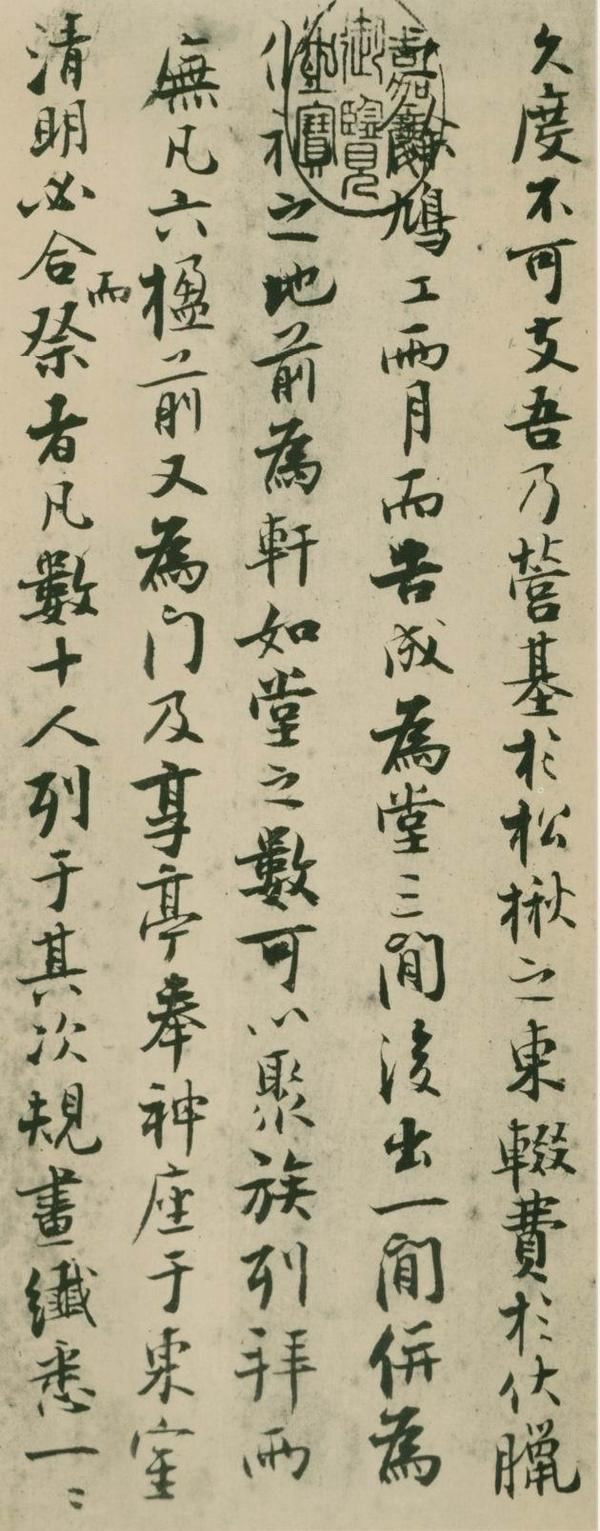 久度不可支吾乃營基於松楸之東輟費於伏臘
鳩工兩月而告成為堂三間後出一間併為
之地前為軒如堂之數可以聚族列拜兩
廡凡六楹前又為門及享亭奉神座于東室
清明必合而祭者凡數十人列于其次規畫纖悉一二
嘉慶
御覽
之寶